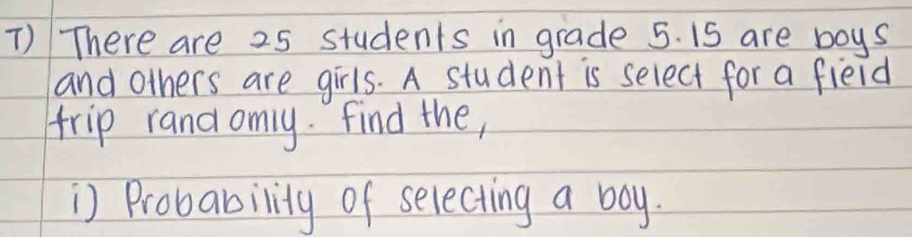 7) There are 25 students in grade 5. 15 are boys
and others are girls. A student is select for a field
trip randomly. find the,
i) Probability of selecting a boy.